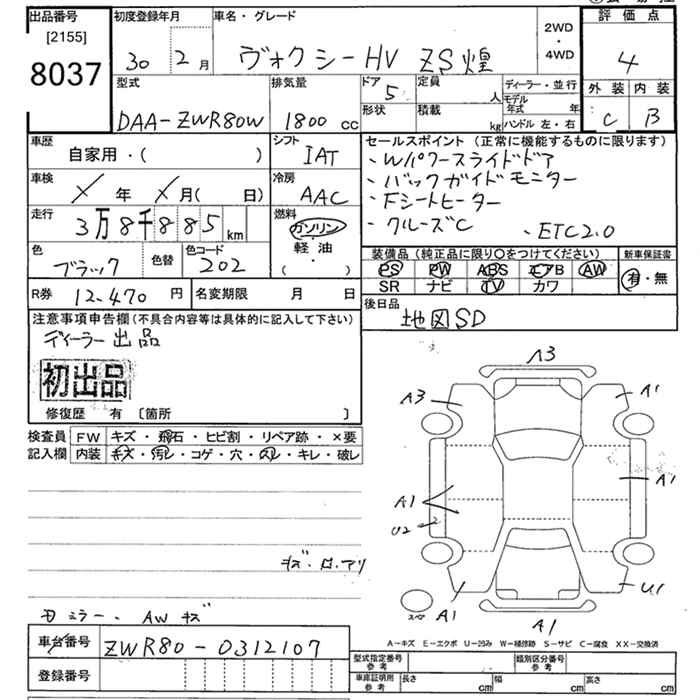 出品番号
[2155]
8037
初度登録年月
30 年 2 月
車名・グレード
ヴォクシーHV ZS煌
2WD
・
4WD
評価点
4
外装 内装
C B
型式
DAA-ZWR80W
排気量
1800 cc
ドア
5
定員
人
形状
積載
kg
ディーラー・並行
モデル
年式 年
ハンドル 左・右
車歴
自家用・( )
シフト
IAT
車検
X 年 X 月( 日)
冷房
AAC
走行
3万8千885 km
燃料
ガソリン
・
軽油
・
( )
色
ブラック
色替
色コード
202
R券 12,470 円
名変期限 月 日
セールスポイント (正常に機能するものに限ります)
・Wパワースライドドア
・バックガイドモニター
・Fシートヒーター
・クルーズC
・ETC2.0
装備品 (純正品に限り〇をつけてください)
新車保証書
PS PW ABS エアB AW
SR ナビ TV カワ
有・無
後日品
地図SD
注意事項申告欄(不具合内容等は具体的に記入して下さい)
ディーラー出品
初出品
修復歴 有 〔箇所 〕
検査員 FW キズ・飛石・ヒビ割・リペア跡・×要
記入欄 内装 キズ・汚レ・コゲ・穴・スレ・キレ・破レ
A3
A3
A1
A1
A1
U2
A1
U1
スペア
A1
キズ・
ミラー、AWキズ
A-キズ E-エクボ U-凹み W-補修跡 S-サビ C-腐食 XX-交換済
車台番号 ZWR80-0312107
登録番号
型式指定番号
参考
類別区分番号
参考
車庫証明用
参考
長さ cm 幅 cm 高さ cm